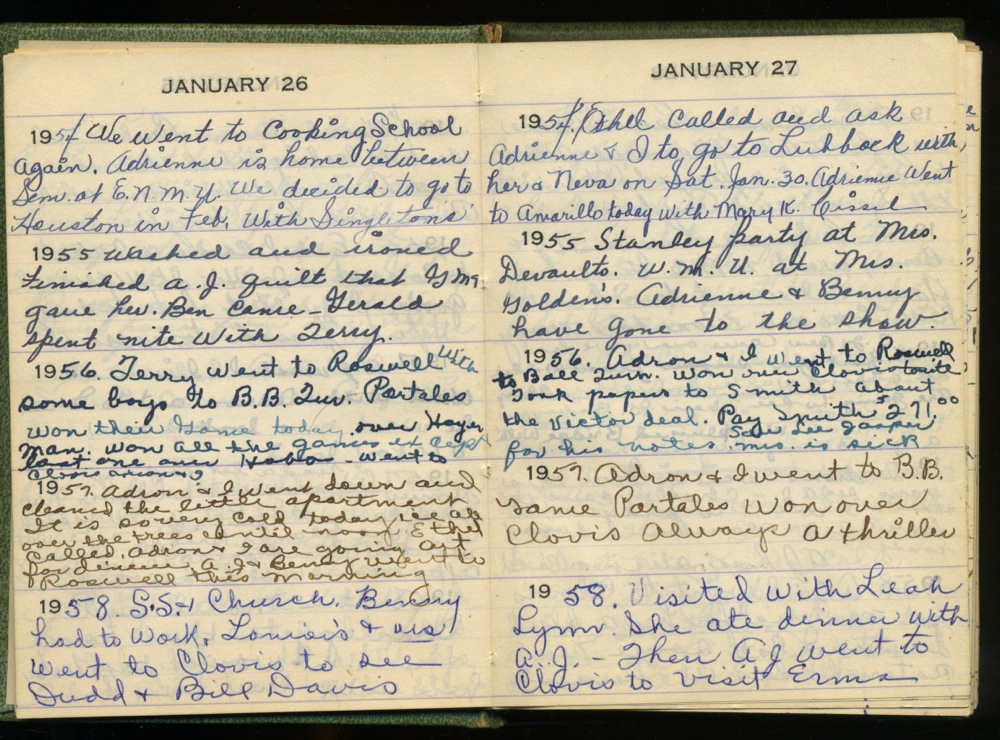 JANUARY 26
1954 We went to Cooking School
again. Adrienne is home between
Sem. at E.N.M.U. We decided to go to
Houston in Feb. With Singletons
1955 Washed and ironed
Finished A.J. quilt that
gave her. Ben came - Gerald
spent nite with Terry.
1956. Terry went to Roswell with
some boys to B.B. Tur. Portales
won their game today over Hager
man. won all the games except
last one over Hobbs went to
Clovis
1957. Adron & I went down and
cleaned the little apartment
It is so very cold today ice all
over the trees until noon. Ethel
called. Adron & I are going out
for dinner. A.J & Benny went to
Roswell this morning
1958. S.S. & Church. Benny
had to work. Louise's & us
went to Clovis to see
Judd & Bill Davis
JANUARY 27
1954. Ethel called and ask
Adrienne & I to go to Lubbock with
her & Neva on Sat. Jan. 30. Adrienne Went
to Amarillo today with Mary K.
1955 Stanley party at Mrs.
Devaults. W.M.U. at Mrs.
Golden's. Adrienne & Benny
have gone to the show.
1956. Adron & I went to Roswell
to Ball Turn. Won over Clovis tonite.
Took papers to Smith about
the Victor deal. Pay Smith $271.00
for his notes. Saw Lee Gasper
Mrs. is sick
1957. Adron & I went to B.B.
game Portales won over
Clovis Always a thriller
1958. Visited with Leah
Lynn. She ate dinner with
A.J. - Then A J went to
Clovis to visit Erma